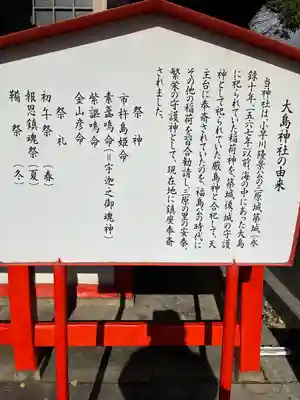 大島神社の由来
当神社は、小早川隆景公の三原城築城(永
録十年、一五六七年)以前、海の中にあった大島
に祀られていた稲荷神を、築城後、城の守護
神として祀られていた厳島神と合祀して、天
主台に奉斎されていたのを、福島公の時代に
その他の稲荷を習合勧請し三原の里の安泰、
繁栄の守護神として、現在地に鎮座奉斎
されました。
祭神
市杵島姫命
素盞鳴命(=宇迦之御魂神)
紫謳鳴命
金山彦命
祭礼
初午祭(春)
報恩鎮魂祭(夏)
鞴祭(冬)